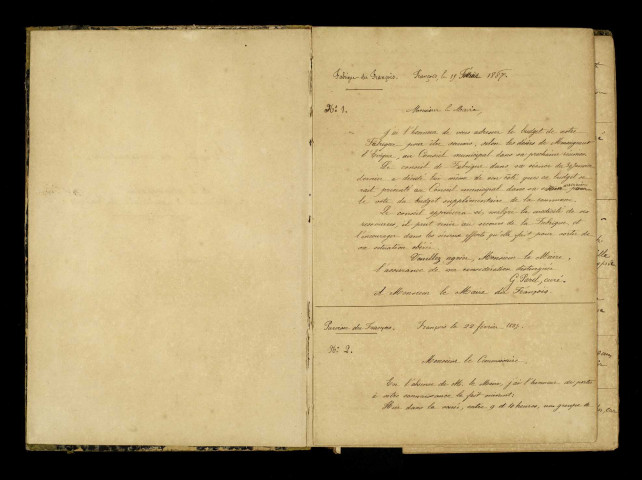 Fabrique du François. François, le 19 Février 1887.
N° 1.
Monsieur le Maire,
J'ai l'honneur de vous adresser le budget de notre
Fabrique, pour être soumis, selon les désirs de Monseigneur
l'Evêque, au Conseil municipal dans sa prochaine réunion.
Le conseil de Fabrique dans sa séance du
dernier a décidé lui même de son côté que ce budget se-
rait présenté au Conseil municipal dans sa session pour
le vote du budget supplémentaire de la commune.
Le conseil appréciera si, malgré la modicité de ses
ressources, il peut venir au secours de la Fabrique, et
l'encourager dans les sérieux efforts qu'elle fait pour sortir de
sa situation obérée.
Veuillez agréer, Monsieur le Maire,
l'assurance de ma considération distinguée
G. Parel, curé.
A Monsieur le Maire du François.
Paroisse du François. François le 22 février 1887.
N° 2.
Monsieur le Commissaire,
En l'absence de Mr le Maire, j'ai l'honneur de porter
à votre connaissance le fait suivant:
Hier dans la soirée, entre 9 et 10 heures, un groupe de